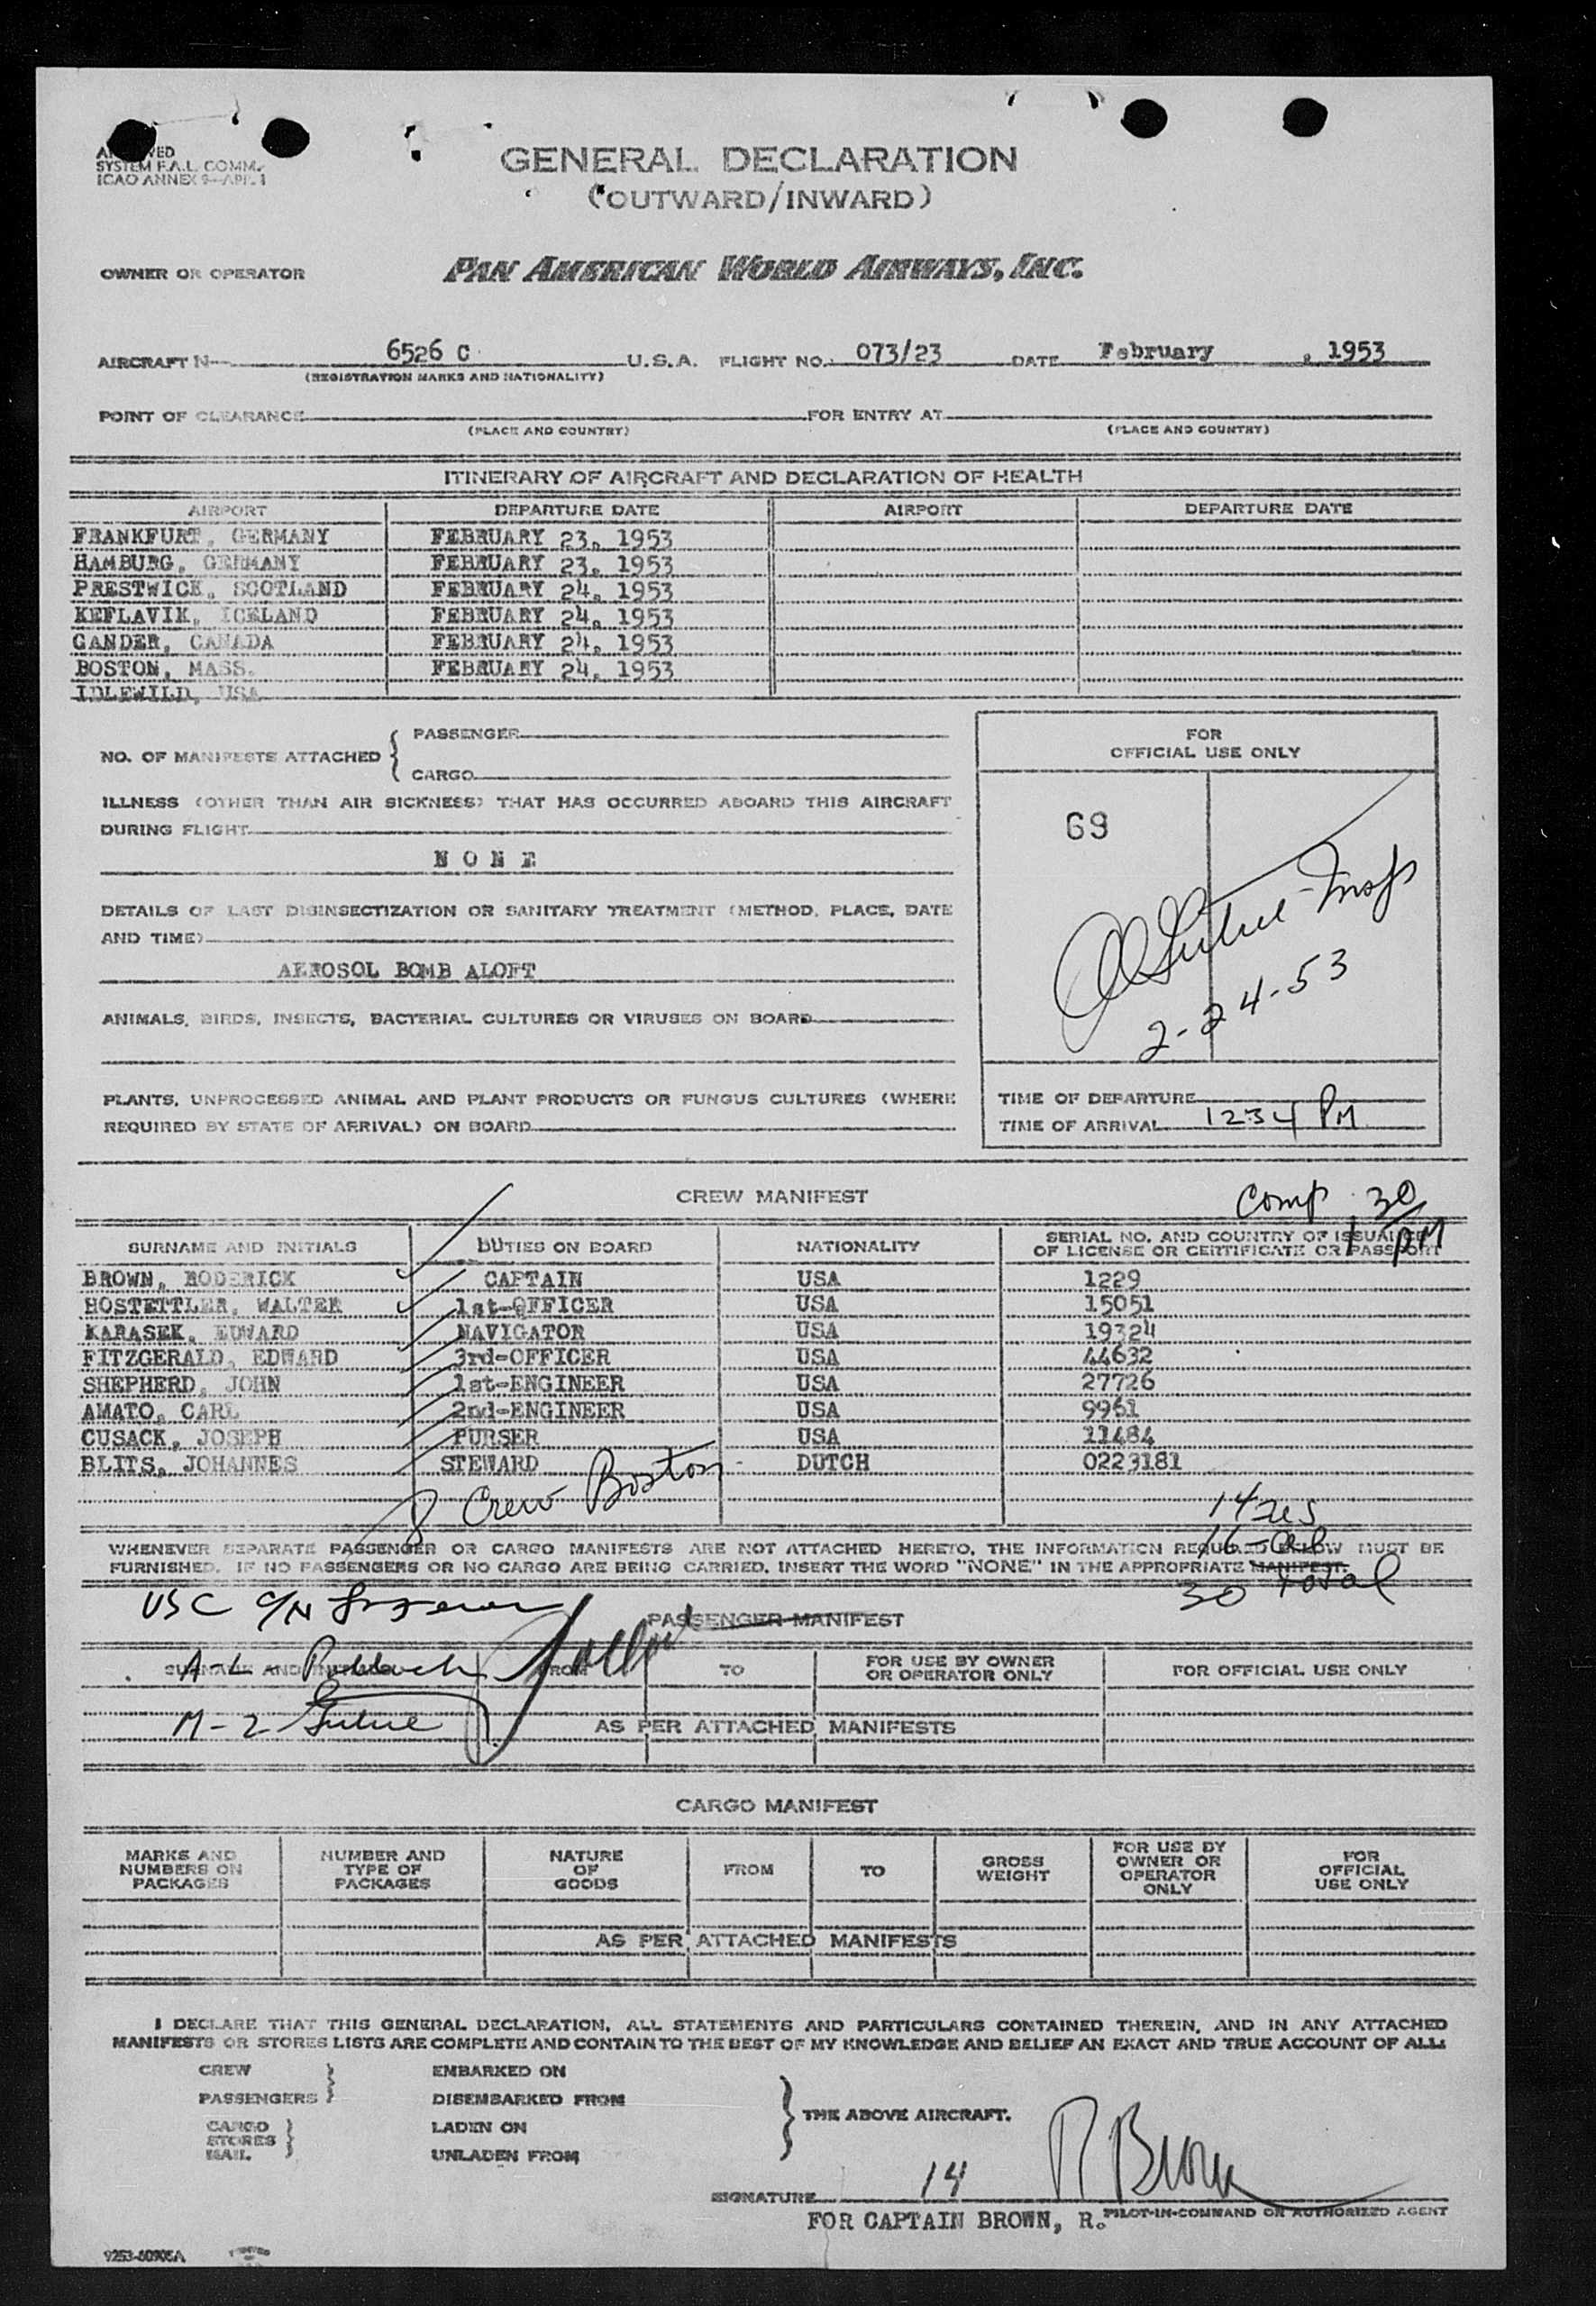 SYSTEM F.A.L. COMM.
ICAO ANNEX 9—APP. 1
GENERAL DECLARATION
(OUTWARD/INWARD)
OWNER OR OPERATOR PAN AMERICAN WORLD AIRWAYS, INC.
AIRCRAFT N— 6526 C U.S.A. FLIGHT NO. 073/23 DATE February , 1953
(REGISTRATION MARKS AND NATIONALITY)
POINT OF CLEARANCE FOR ENTRY AT
(PLACE AND COUNTRY) (PLACE AND COUNTRY)
ITINERARY OF AIRCRAFT AND DECLARATION OF HEALTH
AIRPORT DEPARTURE DATE AIRPORT DEPARTURE DATE
FRANKFURT, GERMANY FEBRUARY 23, 1953
HAMBURG, GERMANY FEBRUARY 23, 1953
PRESTWICK, SCOTLAND FEBRUARY 24, 1953
KEFLAVIK, ICELAND FEBRUARY 24, 1953
GANDER, CANADA FEBRUARY 24, 1953
BOSTON, MASS. FEBRUARY 24, 1953
IDLEWILD, USA
NO. OF MANIFESTS ATTACHED { PASSENGER
CARGO
ILLNESS (OTHER THAN AIR SICKNESS) THAT HAS OCCURRED ABOARD THIS AIRCRAFT
DURING FLIGHT
N O N E
DETAILS OF LAST DISINSECTIZATION OR SANITARY TREATMENT (METHOD, PLACE, DATE
AND TIME)
AEROSOL BOMB ALOFT
ANIMALS, BIRDS, INSECTS, BACTERIAL CULTURES OR VIRUSES ON BOARD
PLANTS, UNPROCESSED ANIMAL AND PLANT PRODUCTS OR FUNGUS CULTURES (WHERE
REQUIRED BY STATE OF ARRIVAL) ON BOARD
FOR
OFFICIAL USE ONLY
69
2-24-53
TIME OF DEPARTURE
TIME OF ARRIVAL 1234 PM
CREW MANIFEST
Comp 1 30/PM
SURNAME AND INITIALS DUTIES ON BOARD NATIONALITY SERIAL NO. AND COUNTRY OF ISSUANCE
OF LICENSE OR CERTIFICATE OR PASSPORT
BROWN, RODERICK CAPTAIN USA 1229
HOSTETTLER, WALTER 1st-OFFICER USA 15051
KARASEK, EDWARD NAVIGATOR USA 19324
FITZGERALD, EDWARD 3rd-OFFICER USA 44632
SHEPHERD, JOHN 1st-ENGINEER USA 27726
AMATO, CARL 2nd-ENGINEER USA 9961
CUSACK, JOSEPH PURSER USA 11484
BLITS, JOHANNES STEWARD DUTCH 0223181
8 Crew Boston
14
16
30 total
WHENEVER SEPARATE PASSENGER OR CARGO MANIFESTS ARE NOT ATTACHED HERETO, THE INFORMATION REQUIRED BELOW MUST BE
FURNISHED. IF NO PASSENGERS OR NO CARGO ARE BEING CARRIED, INSERT THE WORD "NONE" IN THE APPROPRIATE MANIFEST.
USC
PASSENGER MANIFEST
SURNAME AND INITIALS FROM TO FOR USE BY OWNER
OR OPERATOR ONLY FOR OFFICIAL USE ONLY
A-L
M-2
AS PER ATTACHED MANIFESTS
CARGO MANIFEST
MARKS AND
NUMBERS ON
PACKAGES
NUMBER AND
TYPE OF
PACKAGES
NATURE
OF
GOODS
FROM
TO
GROSS
WEIGHT
FOR USE BY
OWNER OR
OPERATOR
ONLY
FOR
OFFICIAL
USE ONLY
AS PER ATTACHED MANIFESTS
I DECLARE THAT THIS GENERAL DECLARATION, ALL STATEMENTS AND PARTICULARS CONTAINED THEREIN, AND IN ANY ATTACHED
MANIFESTS OR STORES LISTS ARE COMPLETE AND CONTAIN TO THE BEST OF MY KNOWLEDGE AND BELIEF AN EXACT AND TRUE ACCOUNT OF ALL:
CREW EMBARKED ON
PASSENGERS } DISEMBARKED FROM
THE ABOVE AIRCRAFT.
CARGO LADEN ON
STORES }
MAIL. UNLADEN FROM
SIGNATURE 14 R Brown
FOR CAPTAIN BROWN, R. PILOT-IN-COMMAND OR AUTHORIZED AGENT